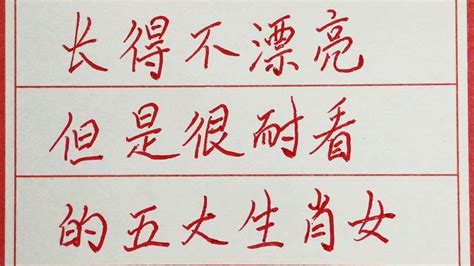 长得不漂亮
但是很耐看
的五大生肖女